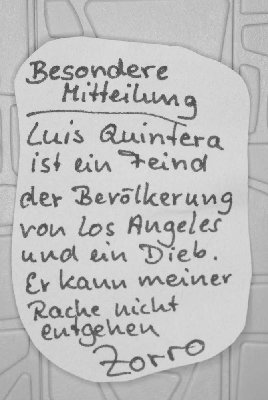 Besondere
Mitteilung
Luis Quintera
ist ein Feind
der Bevölkerung
von Los Angeles
und ein Dieb.
Er kann meiner
Rache nicht
entgehen
Zorro